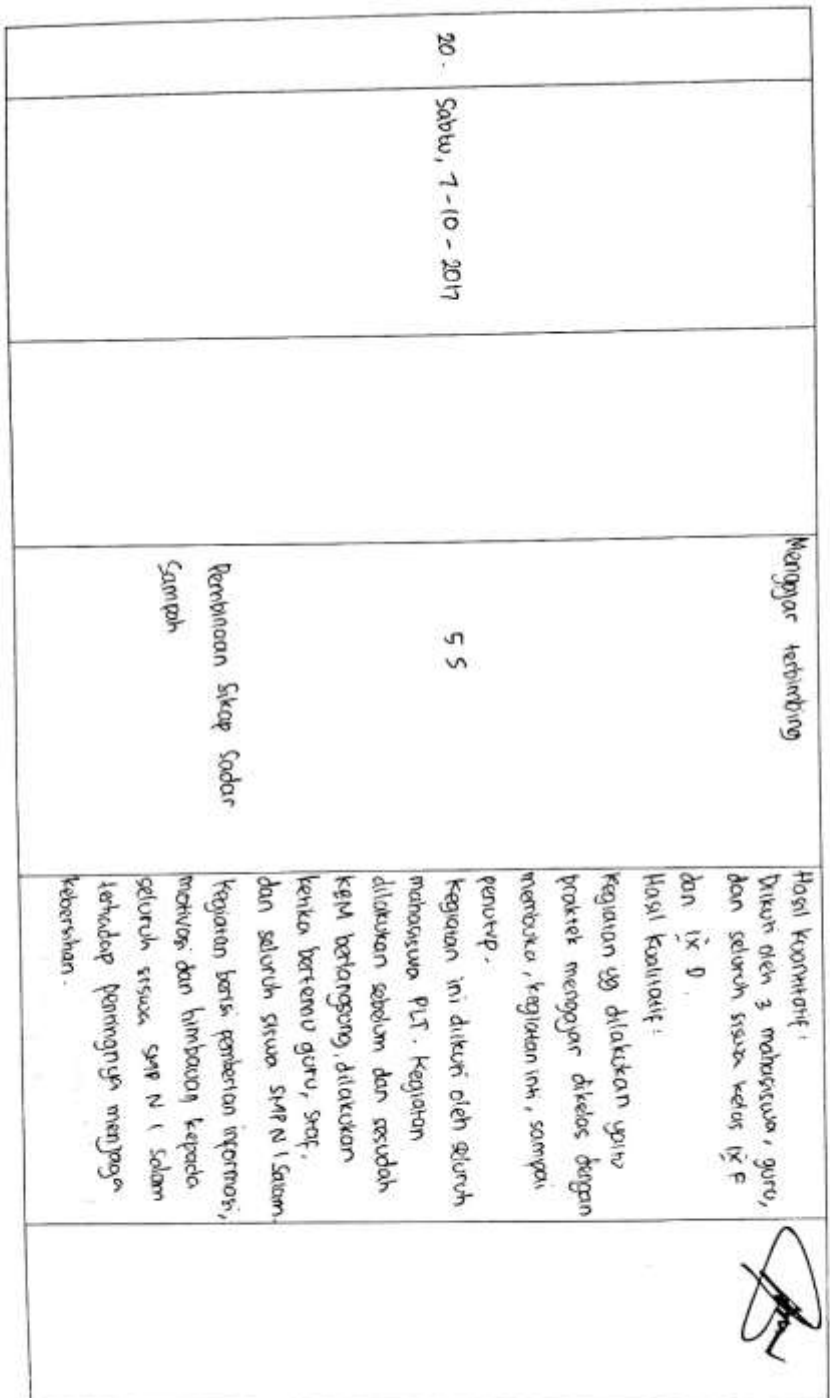 Mengajar terbimbing
Hasil kuantitatif :
Diikuti oleh 3 mahasiswa, guru,
dan seluruh siswa kelas IX F
dan IX D.
Hasil kualitatif :
Kegiatan yg dilakukan yaitu
praktek mengajar dikelas dengan
membuka, kegiatan inti, sampai
penutup.
20. Sabtu, 7-10-2017
5 S
Kegiatan ini diikuti oleh seluruh
mahasiswa PLT. Kegiatan
dilakukan sebelum dan sesudah
KBM berlangsung, dilakukan
ketika bertemu guru, staf,
dan seluruh siswa SMP N 1 Salam.
Pembinaan Sikap Sadar
Sampah
Kegiatan berisi pemberian informasi,
motivasi dan himbauan kepada
seluruh siswa SMP N 1 Salam
terhadap pentingnya menjaga
kebersihan.